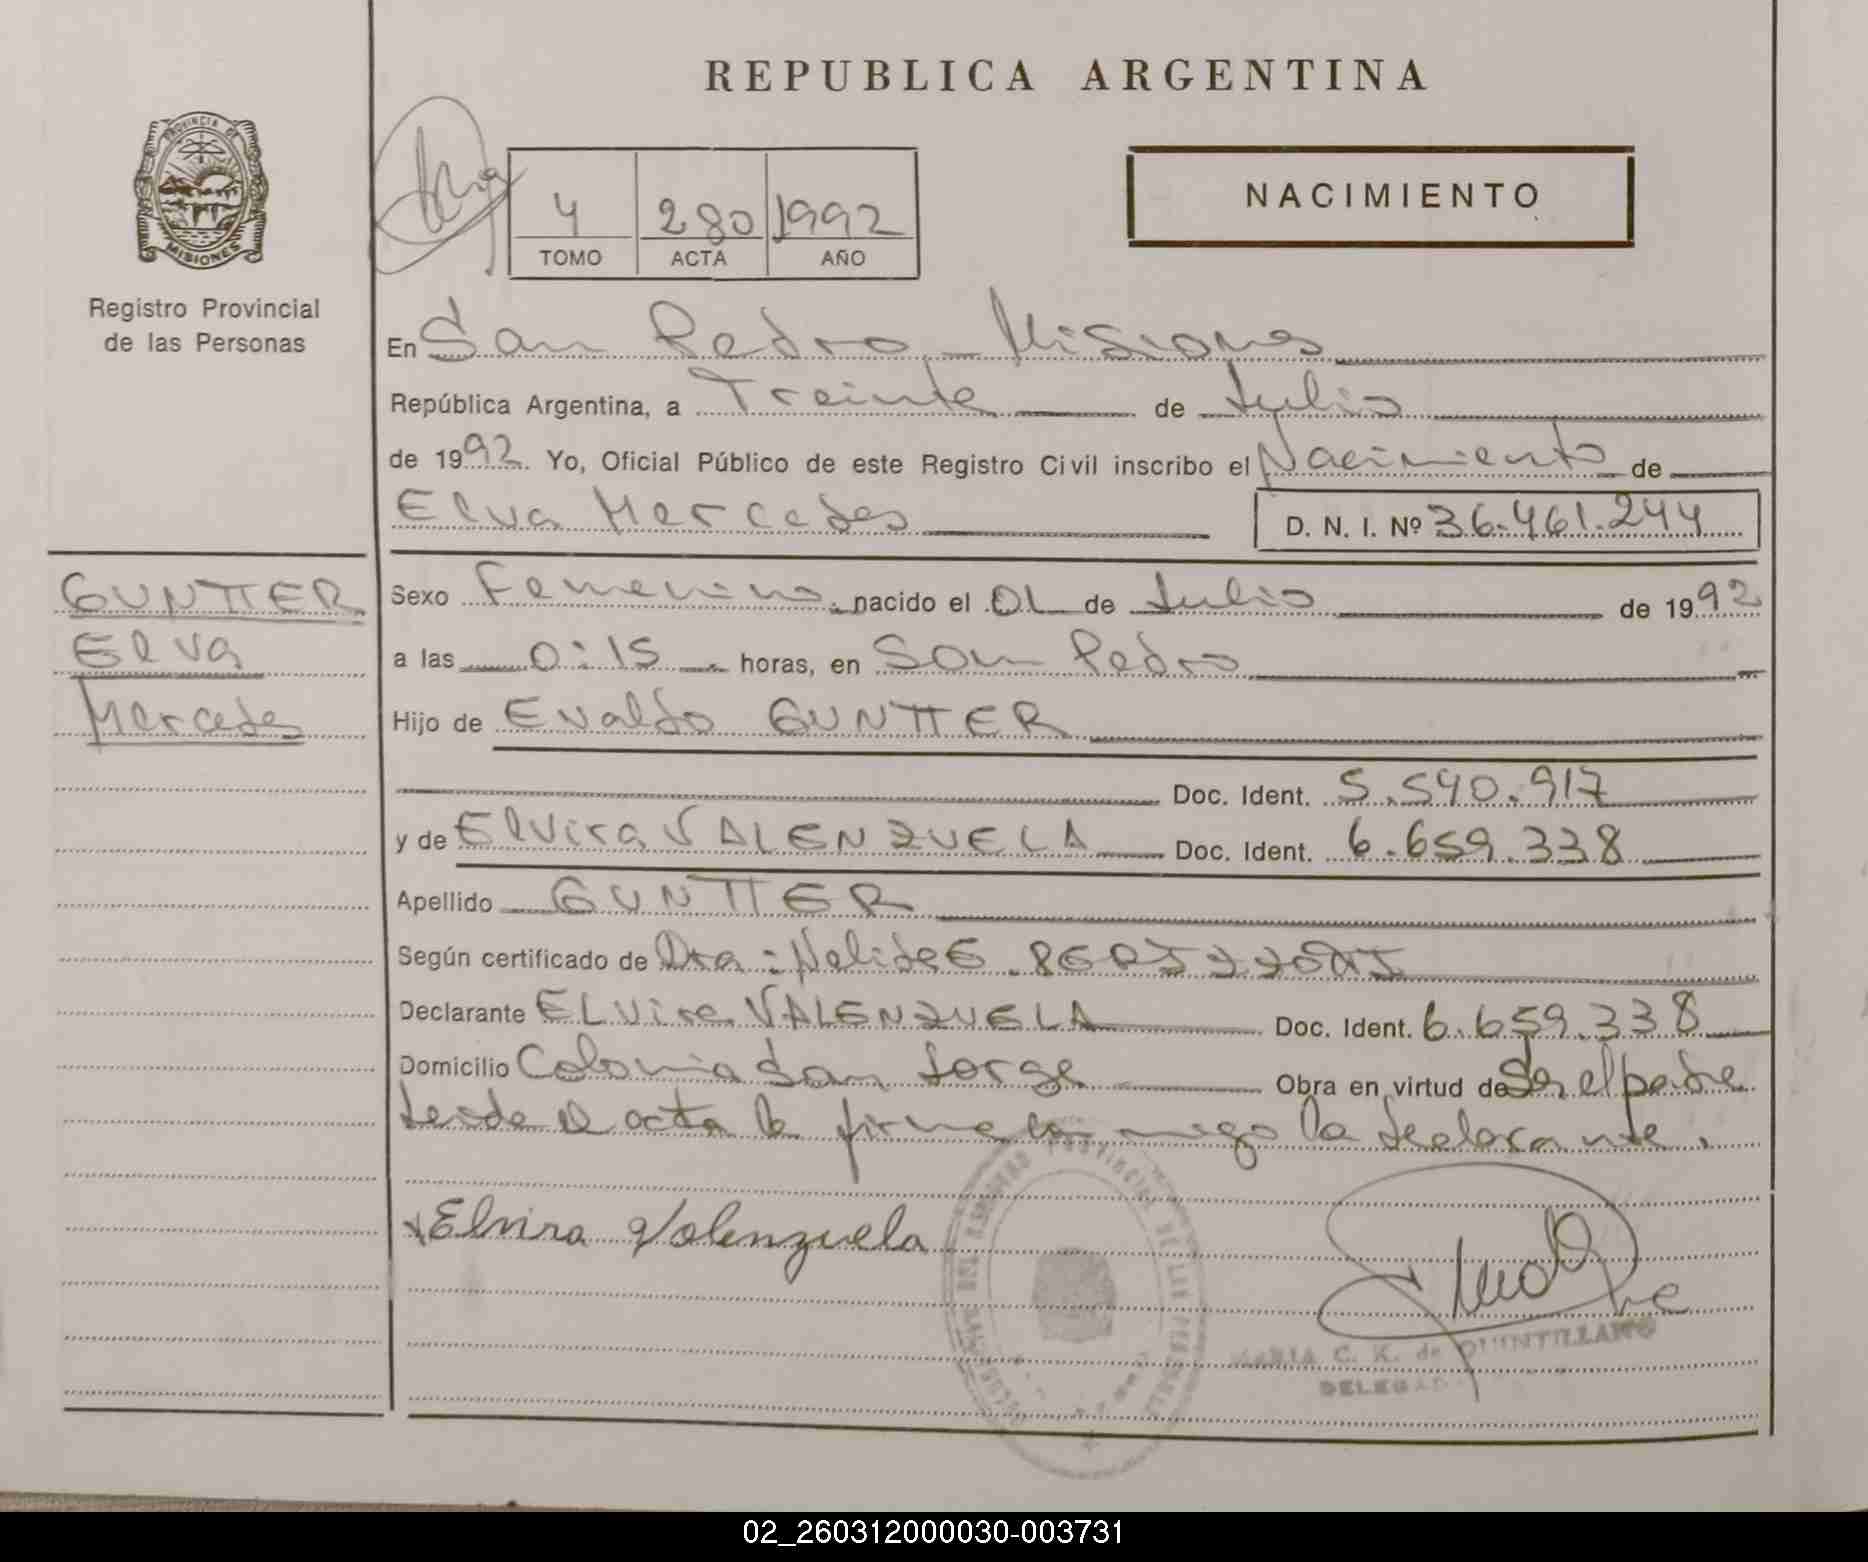 REPUBLICA ARGENTINA
PROVINCIA DE
MISIONES
Registro Provincial
de las Personas
4 280 1992
TOMO ACTA AÑO
NACIMIENTO
En San Pedro - Misiones
República Argentina, a Treinta de Julio
de 1992. Yo, Oficial Público de este Registro Civil inscribo el Nacimiento de
Elva Mercedes D. N. I. Nº 36.461.244
GUNTTER
Elva
Mercedes
Sexo Femenino, nacido el 01 de Julio de 1992
a las 0:15 horas, en San Pedro
Hijo de Evaldo GUNTTER
Doc. Ident. 5.540.917
y de Elvira VALENZUELA Doc. Ident. 6.659.338
Apellido GUNTTER
Según certificado de Dra: Nelida E.
Declarante ELvira VALENZUELA Doc. Ident. 6.659.338
Domicilio Colonia San Jorge Obra en virtud de Ser el padre
Leida el acta la firma conmigo la declarante.
Elvira Valenzuela
MARIA C. K. de QUINTILLANO
DELEGADA
02_260312000030-003731